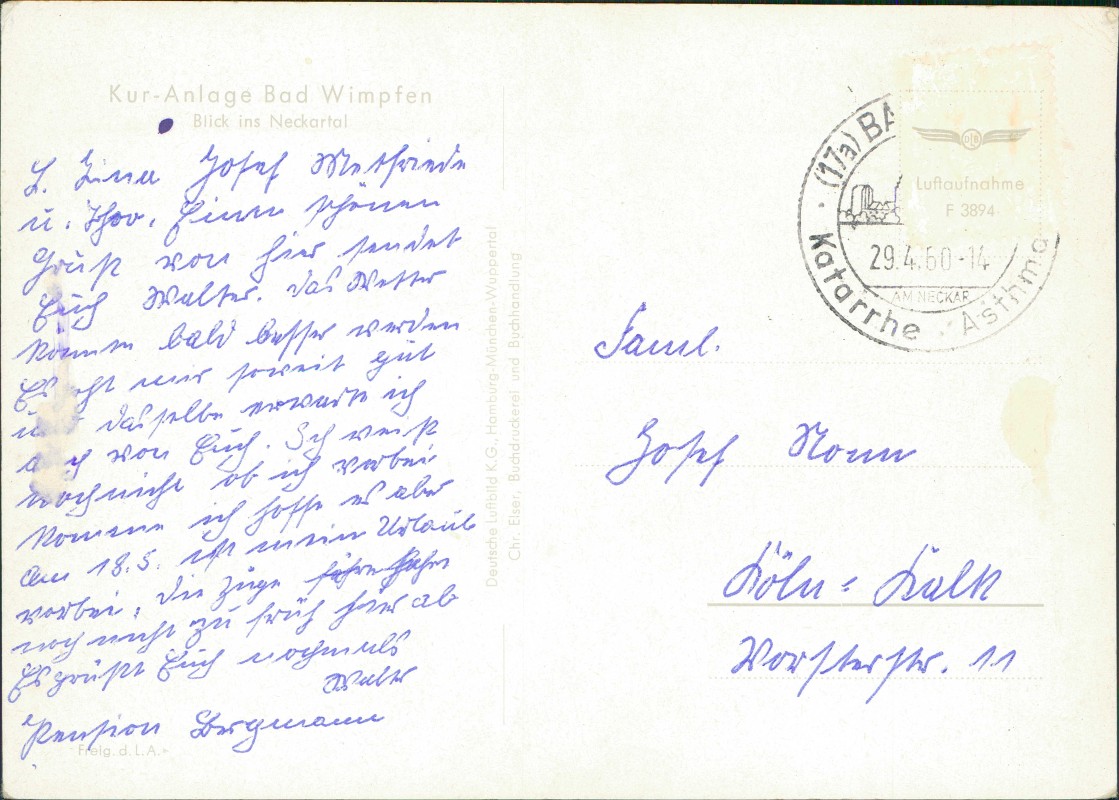 Kur-Anlage Bad Wimpfen
Blick ins Neckartal
L. Lina Josef
u. Theo. Einen schönen
Gruß von hier sendet
Euch Walter. Das Wetter
könnte bald besser werden
Es geht mir soweit gut
und dasselbe erwarte ich
auch von Euch. Ich weiß
noch nicht ob ich vorbei
komme ich hoffe es aber
Am 18.5. ist mein Urlaub
vorbei, die Züge fahren
noch nicht zu früh hier ab
Es grüßt Euch nochmals
Walter
Pension Bergmann
Freig. d. L.A.
Deutsche Luftbild K.G., Hamburg-München-Wuppertal
Chr. Elser, Buchdruckerei und Buchhandlung
(17a) BA
29.4.60-14
AM NECKAR
Katarrhe · Asthma
Luftaufnahme
F 3894
Faml.
Josef Nonn
Köln-Kalk
Vorsterstr. 11